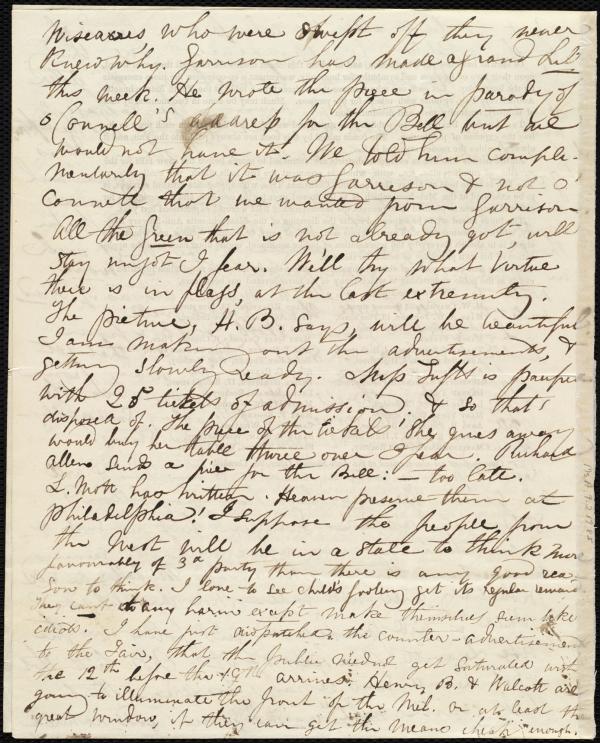 who were swept off they never
knew why. Garrison has made a grand Lib
this week. He wrote the piece in parody of
O'Connell's address for the Bell but we
would not have it. We told him compli-
mentarily that it was Garrison & not O'
Connell that we wanted from Garrison
All the Green that is not already got, will
stay ungot I fear. Will try what virtue
there is in flags, at the last extremity.
The picture, H. B. says, will be beautiful
I am making out the advertisements, &
getting slowly ready. Miss Tufts is
with 25 tickets of admission. & so that's
disposed of. The price of the tickets! She gives away
would buy her table three over I fear. Richard
Allen sends a piece for the Bell: — too late.
L. Mott has written. Heaven preserve them at
Philadelphia! I suppose the people from
the West will be in a state to think more
favourably of 3d party than there is any good rea-
son to think. I love to see child's foolery get its regular reward
They can't do any harm except make themselves seem like
idiots. I have just dispatched the counter-advertisement
to the Fair, that the public need not get saturated with
the 12th before the 19th arrives. Henry, B. & Walcott are
going to illuminate the front of the Mel. or at least the
great window, if they can get the means cheap enough.